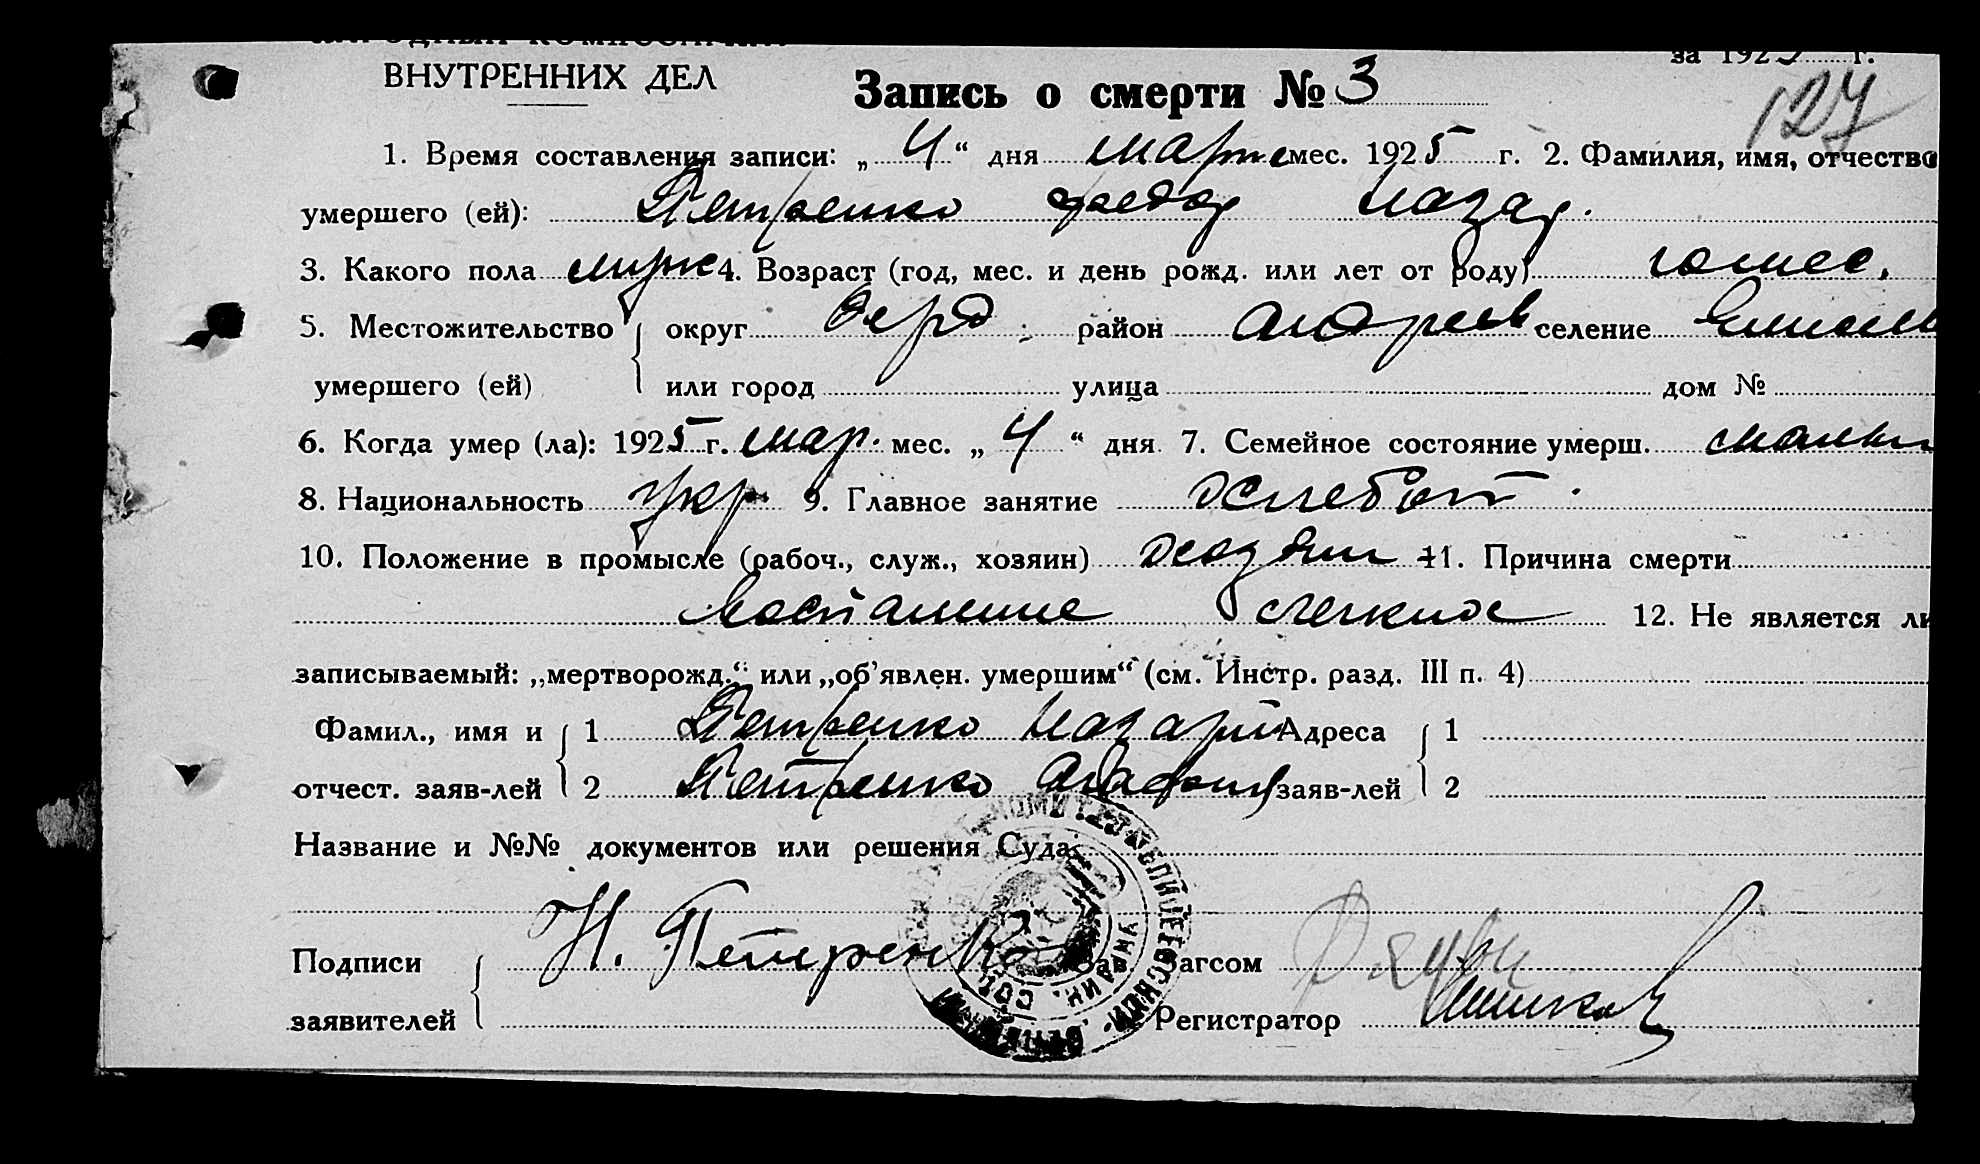 НАРОДНЫЙ КОМИССАРИАТ
ВНУТРЕННИХ ДЕЛ
за 1925 г.
Запись о смерти № 3
127
1. Время составления записи: „ 4 “ дня марта мес. 1925 г. 2. Фамилия, имя, отчество
умершего (ей): Петренко Федор Назар.
3. Какого пола муж 4. Возраст (год, мес. и день рожд. или лет от роду)
5. Местожительство округ Берд район Андреев селение
умершего (ей) или город улица дом №
6. Когда умер (ла): 1925 г. мар. мес. „ 4 “ дня 7. Семейное состояние умерш.
8. Национальность укр 9. Главное занятие хлебоп.
10. Положение в промысле (рабоч., служ., хозяин) хозяин 11. Причина смерти
воспаление легких 12. Не является ли
записываемый: „мертворожд.“ или „об’явлен. умершим“ (см. Инстр. разд. III п. 4)
Фамил., имя и 1 Петренко Назарий Адреса 1
отчест. заяв-лей 2 Петренко заяв-лей 2
Название и №№ документов или решения Суда:
Подписи Н. Петренко Зав. Загсом
заявителей Регистратор